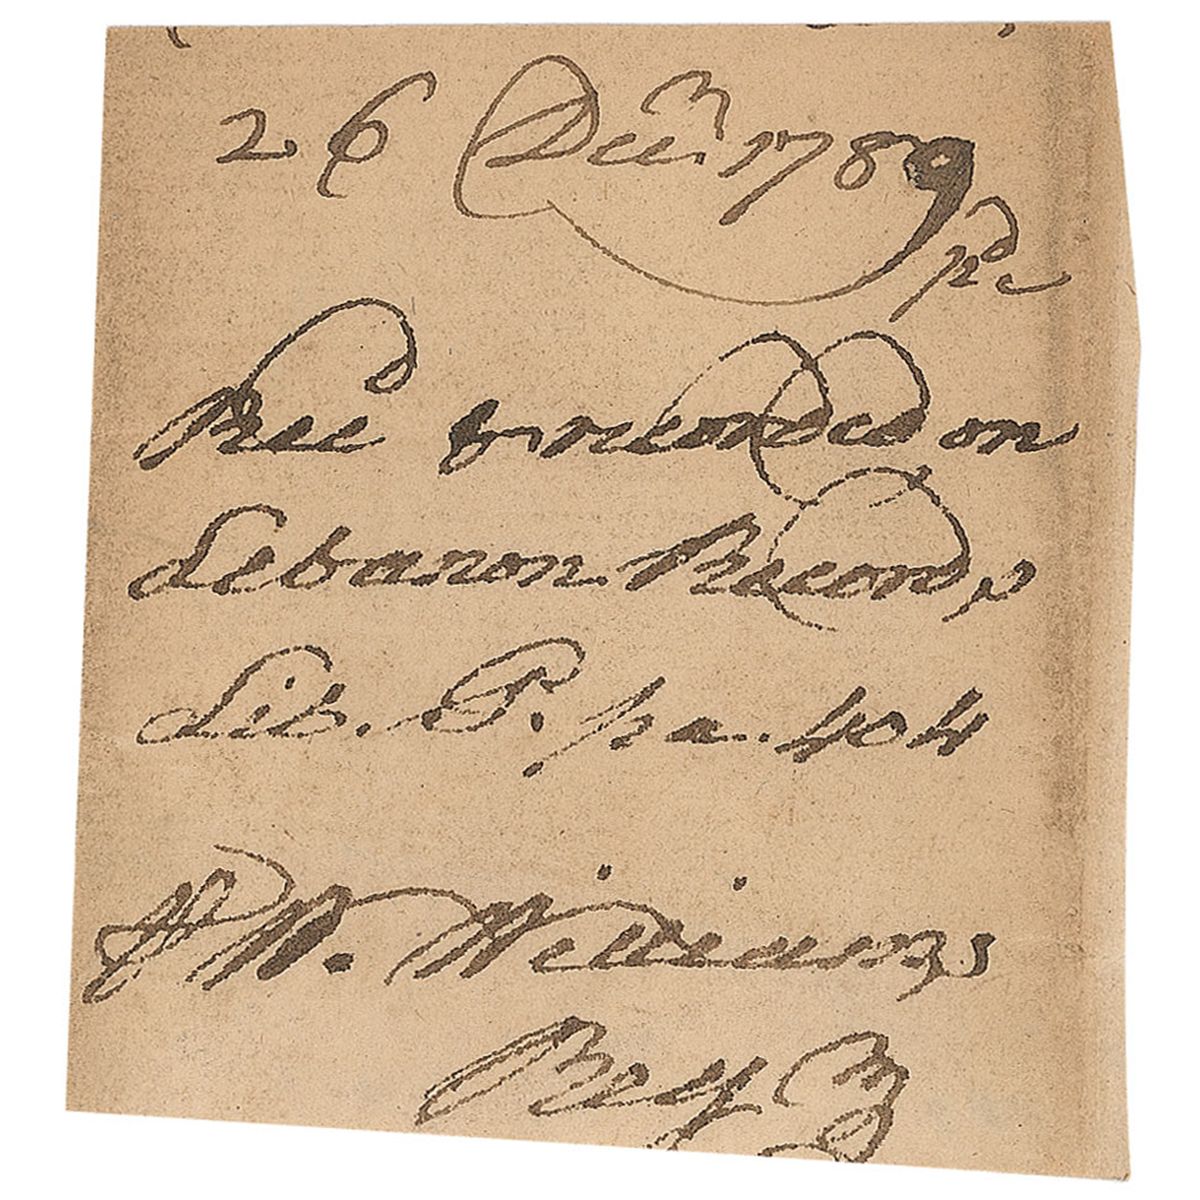 26 Decr. 1789
pd
Recd & recorded on
Lebanon Records
Lib. P. pa. 404
Pr W. Williams
Regr